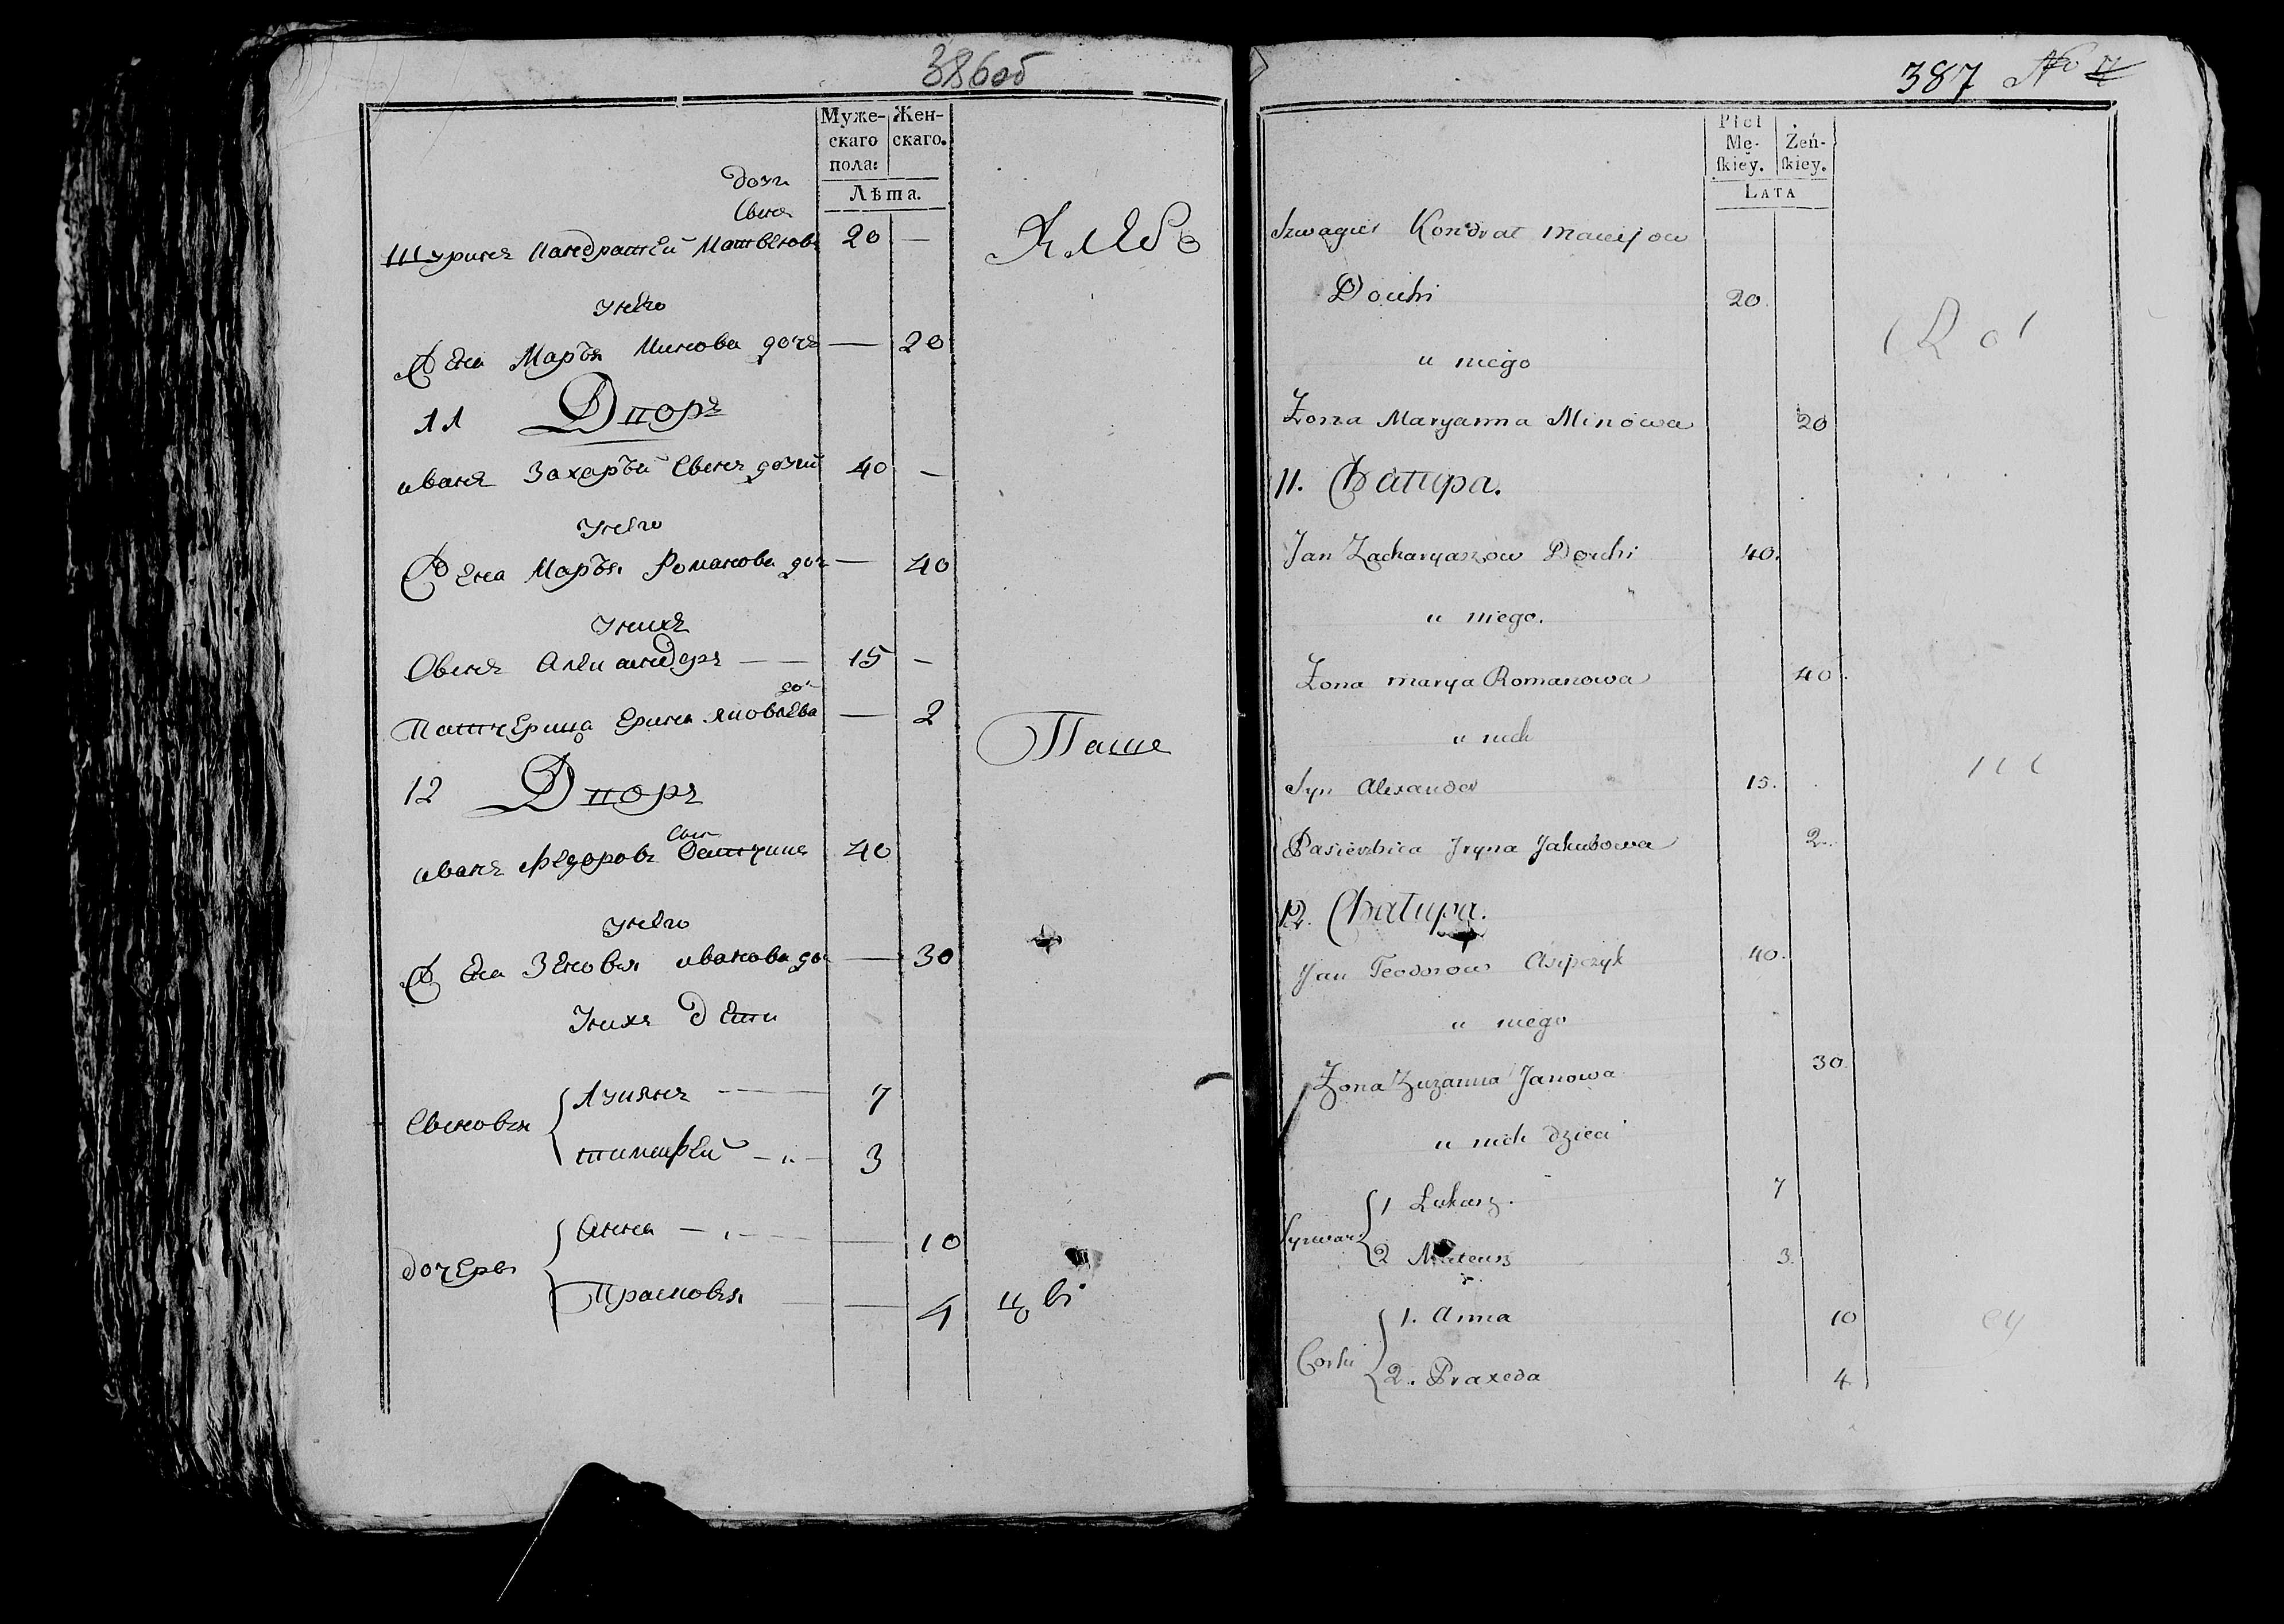 386об
Муже-
скаго
пола:
Жен-
скаго.
Лѣта.
дочи
Свенъ
Шуринъ Кандратей Матвеювъ 20 —
Унего
Жена Марья Минова дочь — 20
11 Дворъ
иванъ Захарьи Свенъ дочий 40 —
Унего
Жена Марья Романова доч — 40
Унихъ
Свенъ Александеръ — — 15 —
доч
Патчерица Ерина Яковлева — 2
12 Дворъ
Свен
иванъ Федоровъ 40
Унего
Жена Зеновья иванова до — 30
Унихъ дети
Свеновья
Лукянъ — 7
тимафей — 3
дочеръ
Анна — — 10
Прасковья — 4
Паше
387 No 7
Płci
Mę-
skiey.
Żeń-
skiey.
LATA
Szwagier Kondrat Maciejow
Dochi 20.
u niego
Żona Maryanna Minowa 20
11. Chatupa.
Jan Zacharyaszow Dochi 40.
u niego.
Żona Marya Romanowa 40.
u nich
Syn Alexander 15.
Pasierbica Jryna Jakubowa 2.
12. Chatupa.
Jan Teodorow Asipczyk 40.
u niego
Żona Zuzanna Janowa 30.
u nich dzieci
Synowie
1 Łukasz. 7
2 Mateusz 3.
Corki
1. Anna 10
2. Praxeda 4